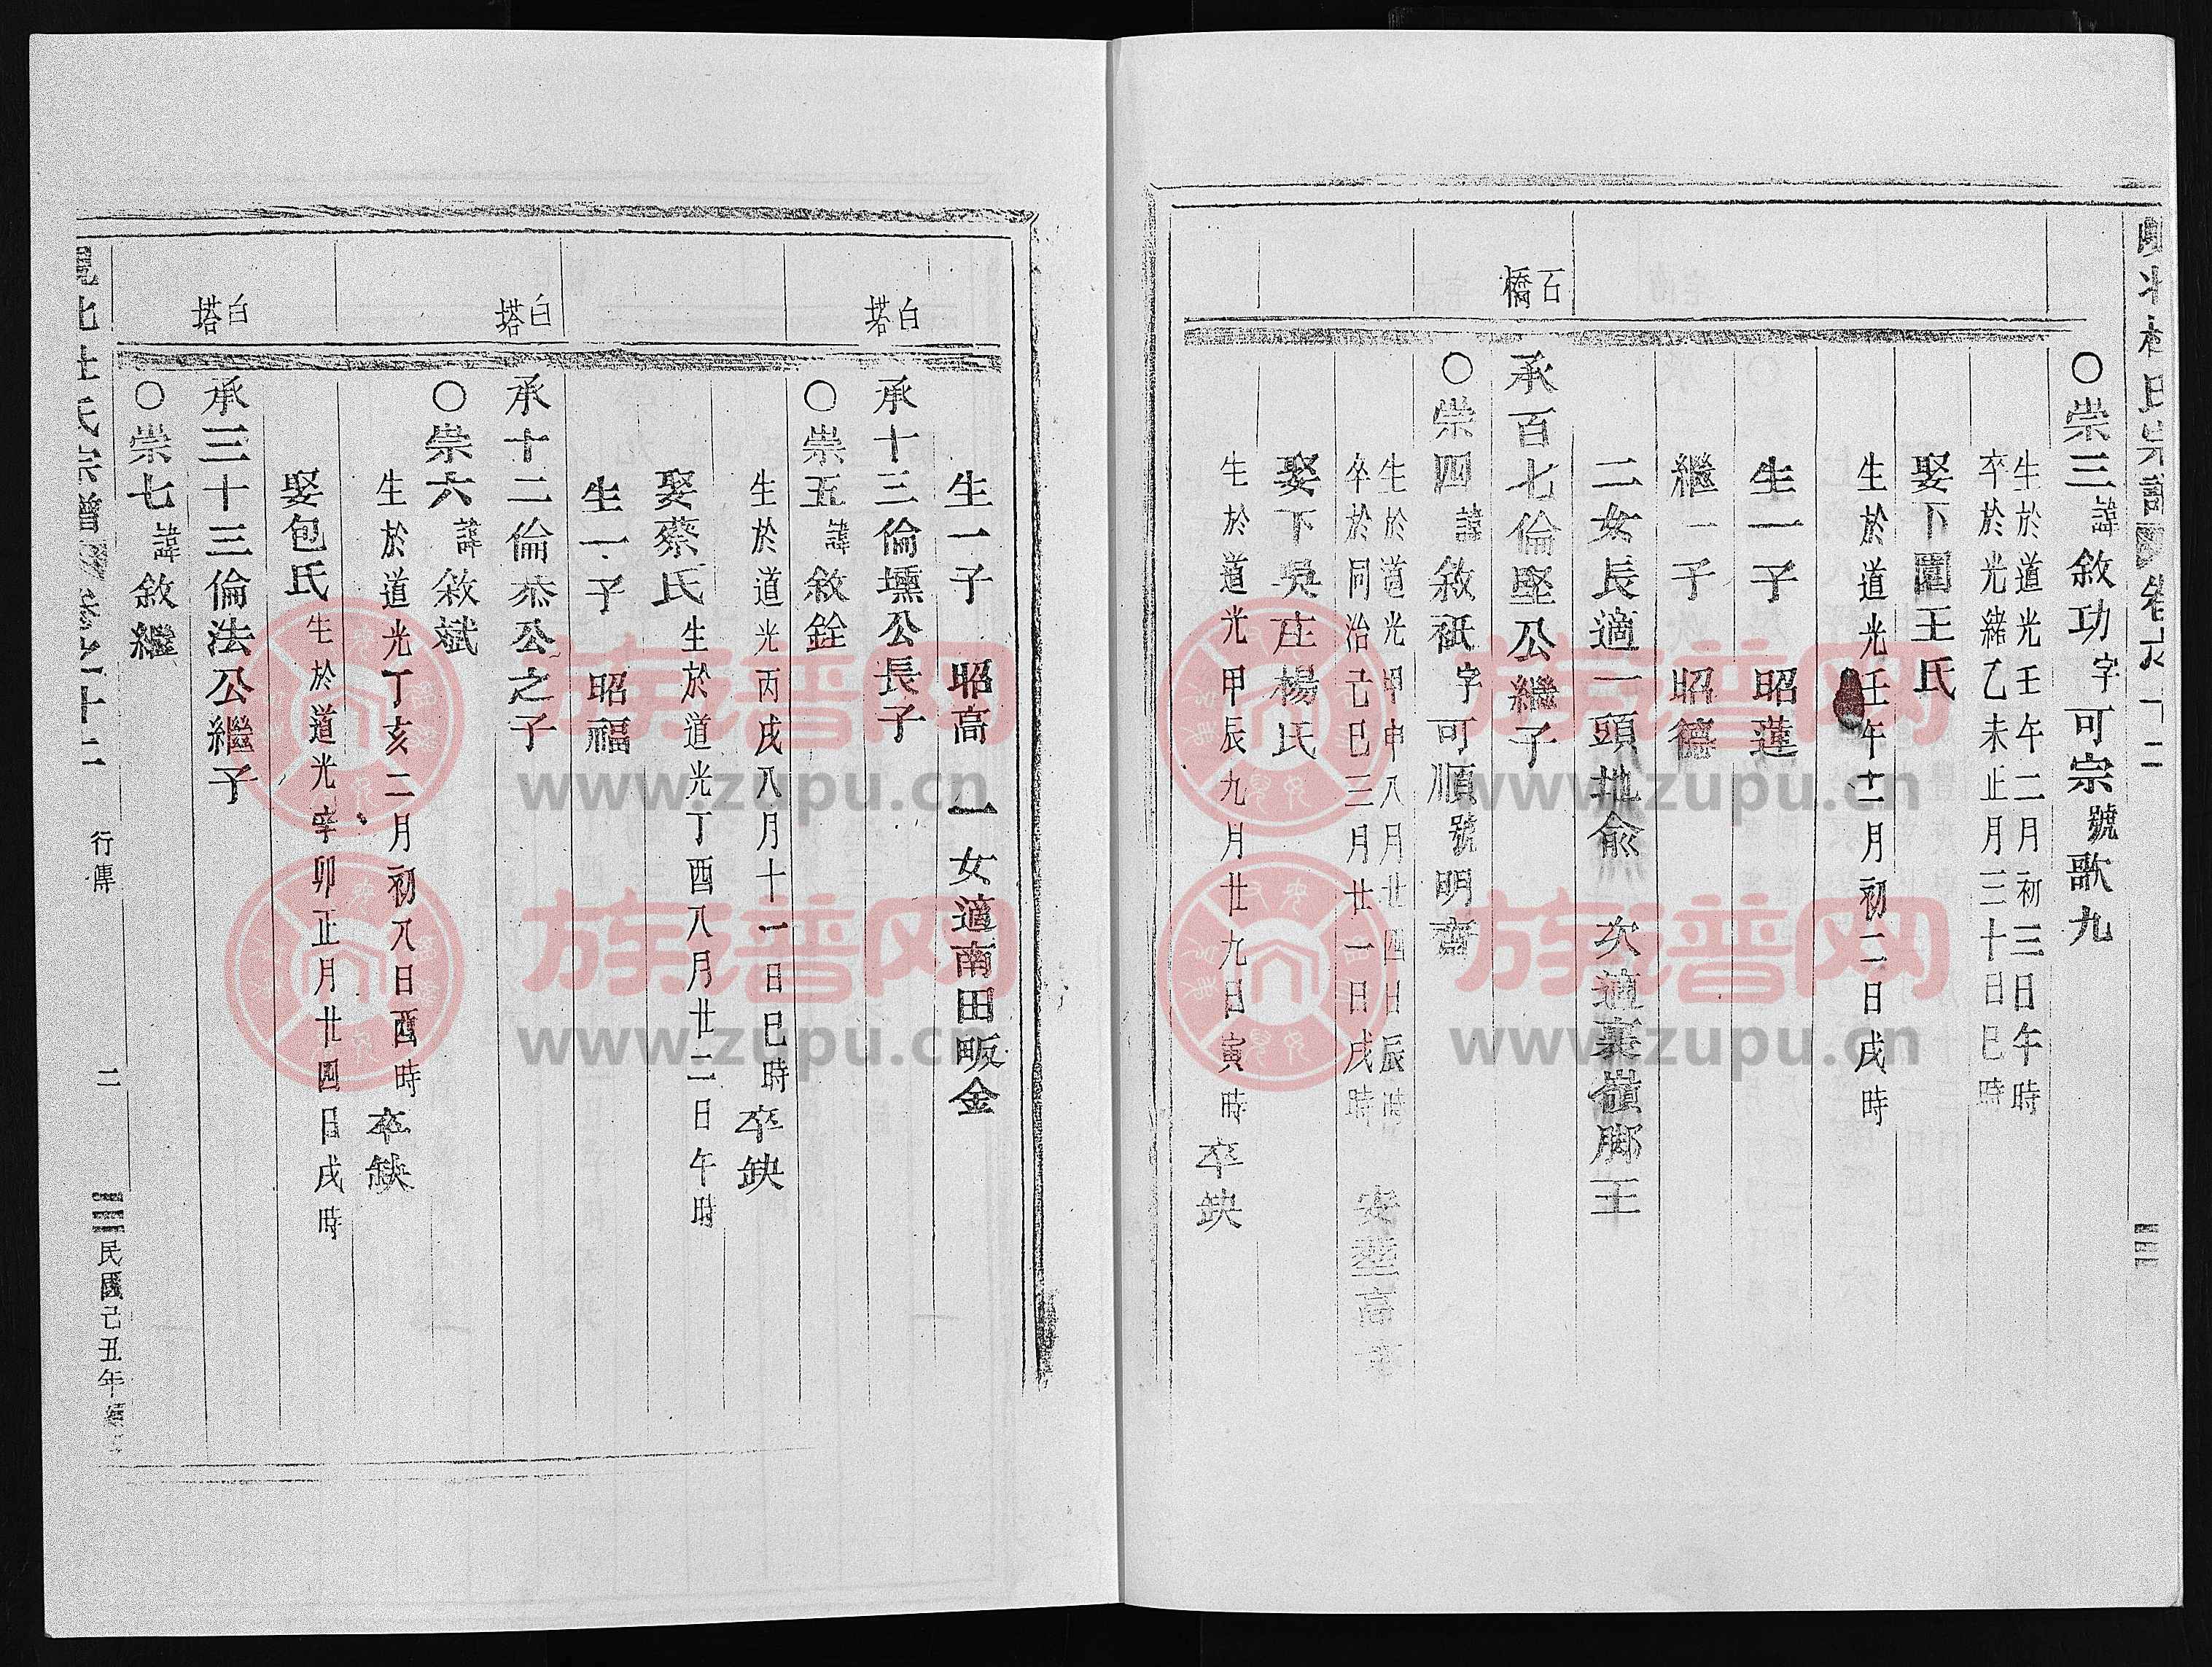 ○崇三諱敘功字可宗號歌九
生於道光壬午二月初三日午時
卒於光緒乙未正月三十日巳時
娶下園王氏
生於道光壬午十二月初二日戌時
生一子 昭蓮
繼一子 昭德
二女長適一頭地俞 次適裏嶺脚王
石橋
承百七倫堅公繼子
○崇四諱敘祇字可順號明齋
生於道光甲申八月廿四日辰時
卒於同治己巳三月廿一日戌時
娶下吳庄楊氏
生於道光甲辰九月廿九日寅時卒缺
生一子 昭高 一女適南田畈金
白塔
承十三倫壎公長子
○崇五諱敘銓
生於道光丙戌八月十一日巳時卒缺
娶蔡氏生於道光丁酉八月廿二日午時
生一子 昭福
白塔
承十二倫恭公之子
○崇六諱敘斌
生於道光丁亥二月初八日酉時卒缺
娶包氏生於道光辛卯正月廿四日戌時
白塔
承三十三倫法公繼子
○崇七諱敘繼
行傳
二
民國己丑年
族譜网
www.zupu.cn
族譜网
www.zupu.cn
族譜网
www.zupu.cn
族譜网
www.zupu.cn